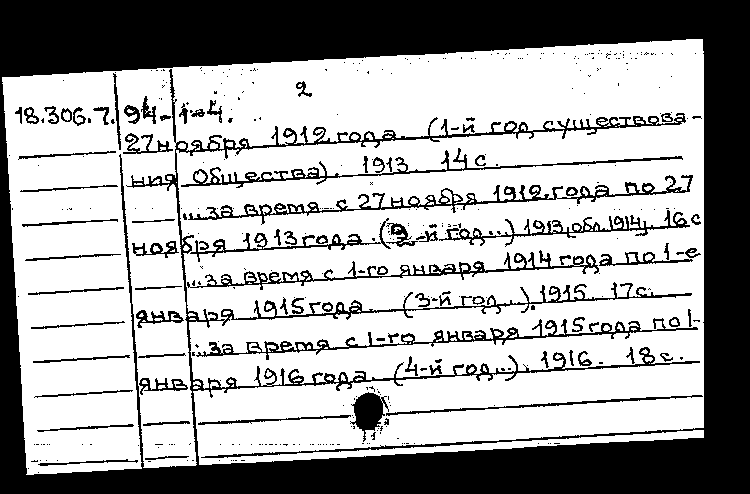 2
18.306.7.94-1-4.
27 ноября 1912 года. (1-й год существова-
ния Общества). 1913. 14 с.
...за время с 27 ноября 1912 года по 27
ноября 1913 года. (2-й год...) 1913, обл. 1914. 16 с
...за время с 1-го января 1914 года по 1-е
января 1915 года. (3-й год...). 1915. 17 с.
...за время с 1-го января 1915 года по 1-
января 1916 года. (4-й год...). 1916. 18 с.